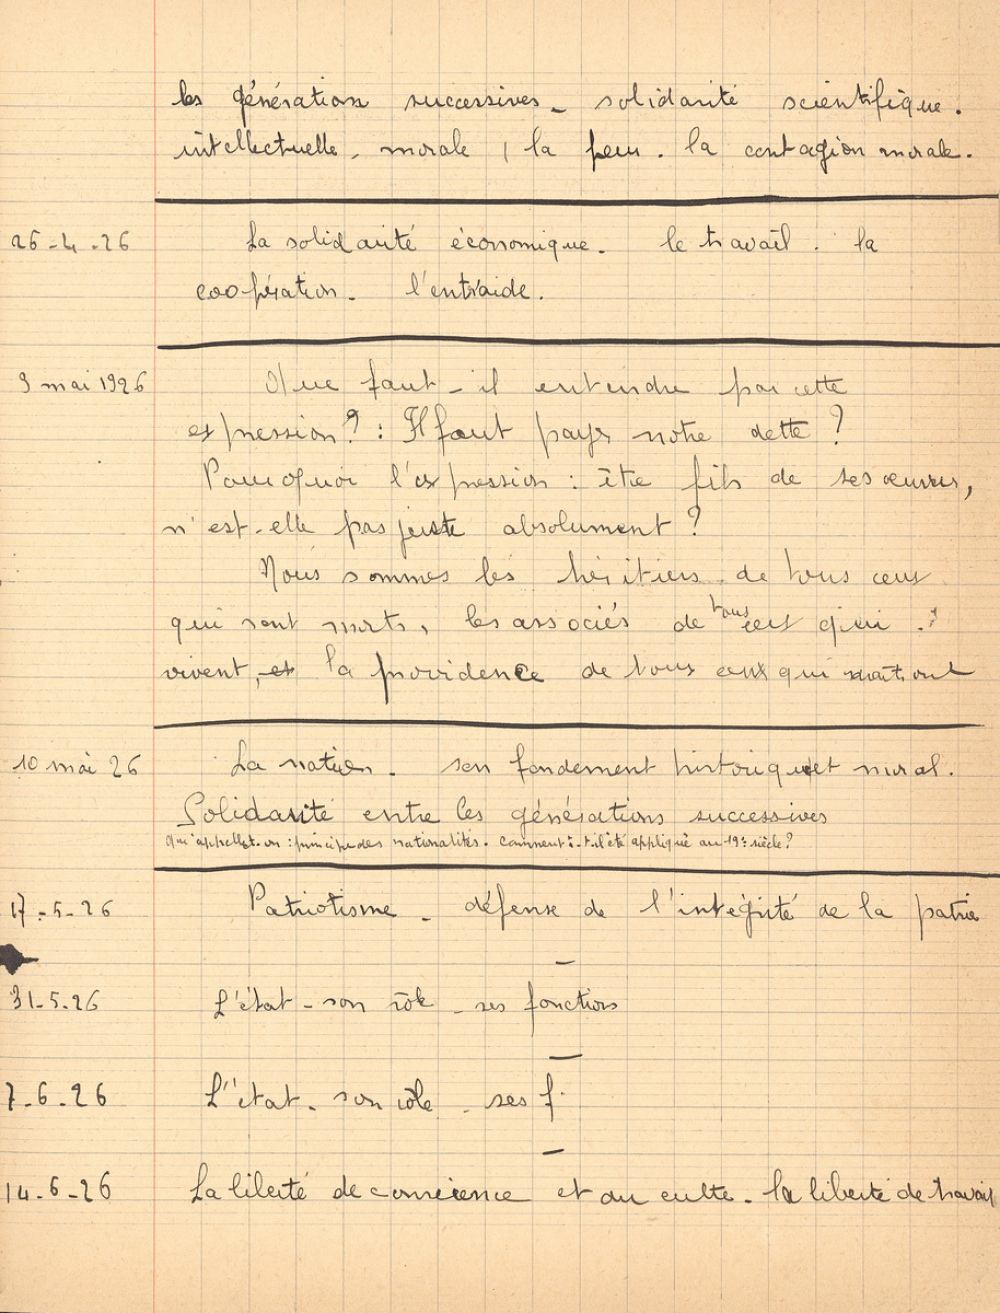 les générations successives - solidarité scientifique.
intellectuelle, morale, la peur. la contagion morale.
26-4-26 La solidarité économique. le travail. la
coopération. l'entraide.
9 mai 1926 Que faut-il entendre par cette
expression ? : Il faut payer notre dette ?
Pourquoi l'expression : être fils de ses œuvres,
n'est-elle pas juste absolument ?
Nous sommes les héritiers de tous ceux
qui sont morts, les associés de tous ceux qui
vivent, et la providence de tous ceux qui naîtront
10 mai 26 La nation. son fondement historique et moral.
Solidarité entre les générations successives
Qu'appelle-t-on : principe des nationalités. Comment a-t-il été appliqué au 19e siècle ?
17-5-26 Patriotisme - défense de l'intégrité de la patrie
31-5-26 L'état - son rôle - ses fonctions
7-6-26 L'état - son rôle - ses f.
14-6-26 La liberté de conscience et du culte. la liberté de travail